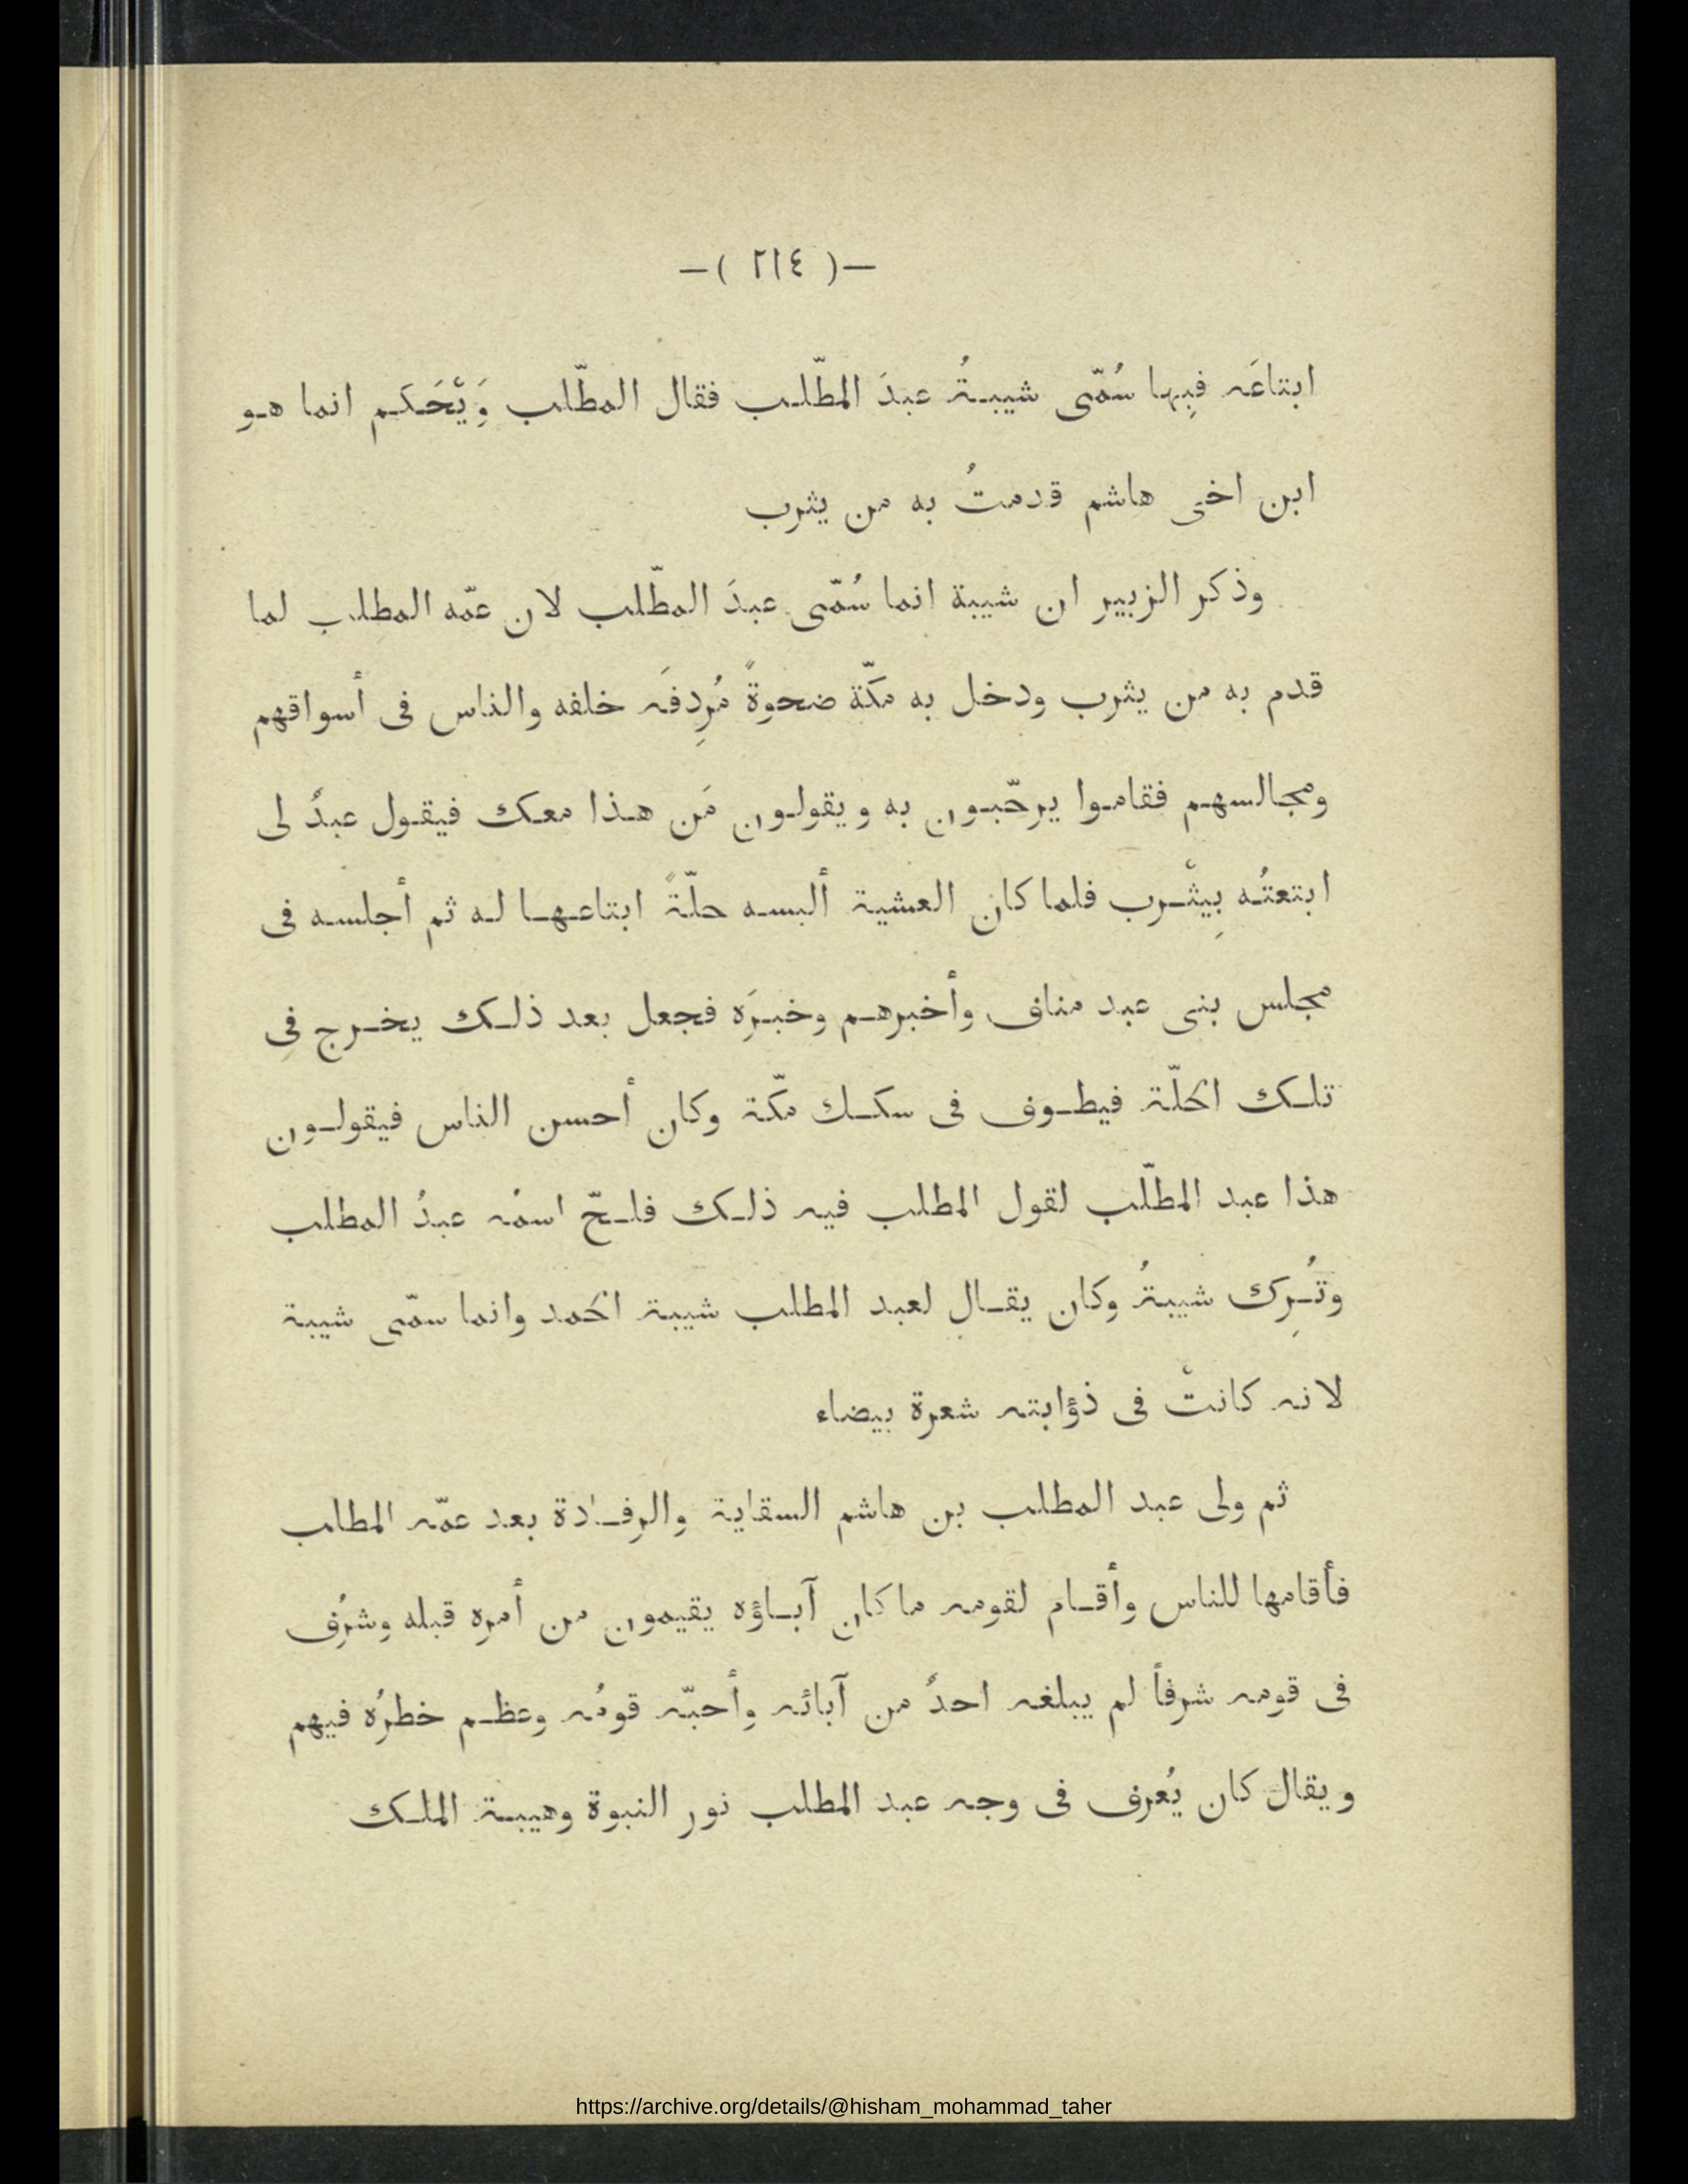 —( ٢١٤ )—
ابتاعَه فبِها سُمّى شيبةُ عبدَ المطّلب فقال المطّلب وَيْحَكم انما هو
ابن اخى هاشم قدمتُ به من يثرب
وذكر الزبير ان شيبة انما سُمّى عبدَ المطّلب لان عمّه المطلب لما
قدم به من يثرب ودخل به مكّة ضحوةً مُردِفَه خلفه والناس فى أسواقهم
ومجالسهم فقاموا يرحّبون به ويقولون مَن هذا معك فيقول عبدٌ لى
ابتعتُه بِيثْرِب فلما كان العشية ألبسه حلّةً ابتاعها له ثم أجلسه فى
مجلس بنى عبد مناف وأخبرهم وخبرَه فجعل بعد ذلك يخرج فى
تلك الحلّة فيطوف فى سكك مكّة وكان أحسن الناس فيقولون
هذا عبد المطلّب لقول المطلب فيه ذلك فلجّ اسمُه عبدُ المطلب
وتُرِك شيبةُ وكان يقال لعبد المطلب شيبة الحَمد وانما سمّى شيبة
لانه كانتْ فى ذؤابته شعرة بيضاء
ثم ولى عبد المطلب بن هاشم السقاية والرفادة بعد عمّه المطلب
فأقامها للناس وأقام لقومه ما كان آباؤه يقيمون من أمره قبله وشرُف
فى قومه شرفاً لم يبلغه احدٌ من آبائه وأحبّه قومُه وعظم خطرُه فيهم
ويقال كان يُعرف فى وجه عبد المطلب نور النبوة وهيبة الملك
https://archive.org/details/@hisham_mohammad_taher